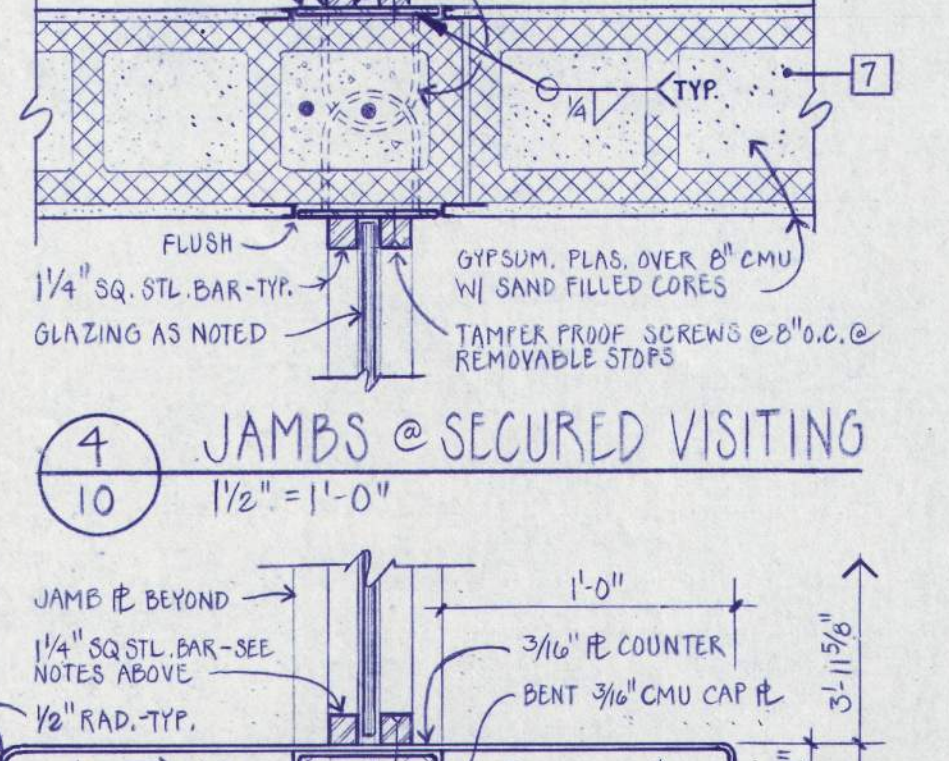 7
1/4
TYP.
FLUSH
1 1/4" SQ. STL. BAR-TYP.
GLAZING AS NOTED
GYPSUM. PLAS. OVER 8" CMU
W/ SAND FILLED CORES
TAMPER PROOF SCREWS @ 8" O.C. @
REMOVABLE STOPS
4
10
JAMBS @ SECURED VISITING
1 1/2" = 1'-0"
JAMB PL BEYOND
1 1/4" SQ STL. BAR-SEE
NOTES ABOVE
1/2" RAD.-TYP.
1'-0"
3/16" PL COUNTER
BENT 3/16" CMU CAP PL
3'-11 5/8"